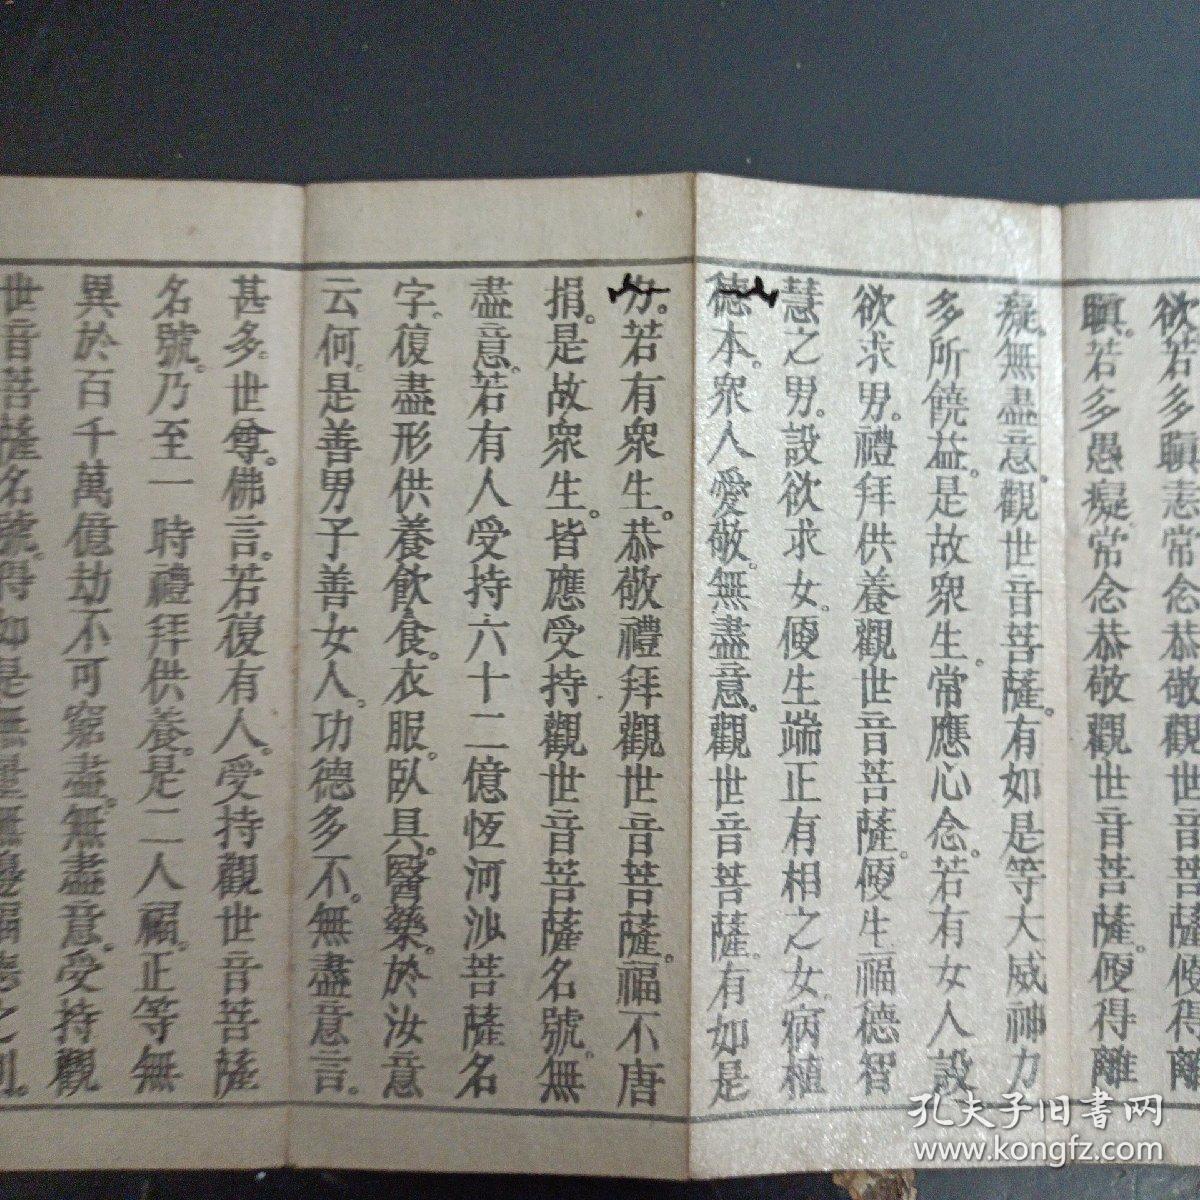 欲。若多瞋恚。常念恭敬觀世音菩薩。便得離
瞋。若多愚癡。常念恭敬觀世音菩薩。便得離
癡。無盡意。觀世音菩薩。有如是等大威神力
多所饒益。是故眾生。常應心念。若有女人設
欲求男。禮拜供養觀世音菩薩。便生福德智
慧之男。設欲求女。便生端正有相之女。病植
德本。眾人愛敬。無盡意。觀世音菩薩。有如是
力。若有眾生。恭敬禮拜觀世音菩薩。福不唐
捐。是故眾生。皆應受持觀世音菩薩名號。無
盡意。若有人受持六十二億恆河沙菩薩名
字。復盡形供養飲食。衣服。臥具。醫藥。於汝意
云何。是善男子善女人。功德多不。無盡意言。
甚多。世尊。佛言。若復有人。受持觀世音菩薩
名號。乃至一時禮拜供養。是二人福。正等無
異。於百千萬億劫。不可窮盡。無盡意。受持觀
世音菩薩名號。得如是無量無邊福德之利。
孔夫子旧书网
www.kongfz.com